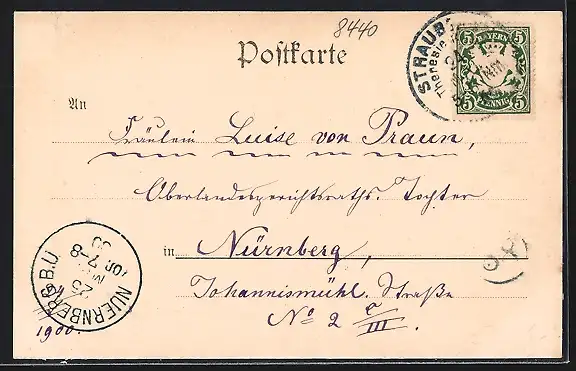 8440
Postkarte
STRAUB
BAYERN
5 5
5 5
PFENNIG
An
Fräulein Luise von Praun,
Oberlandesgerichtsraths-Tochter
in Nürnberg,
Johannismühl. Straße
No 2 III.
NUERNBERG B.U
25
7-8
00
1900.